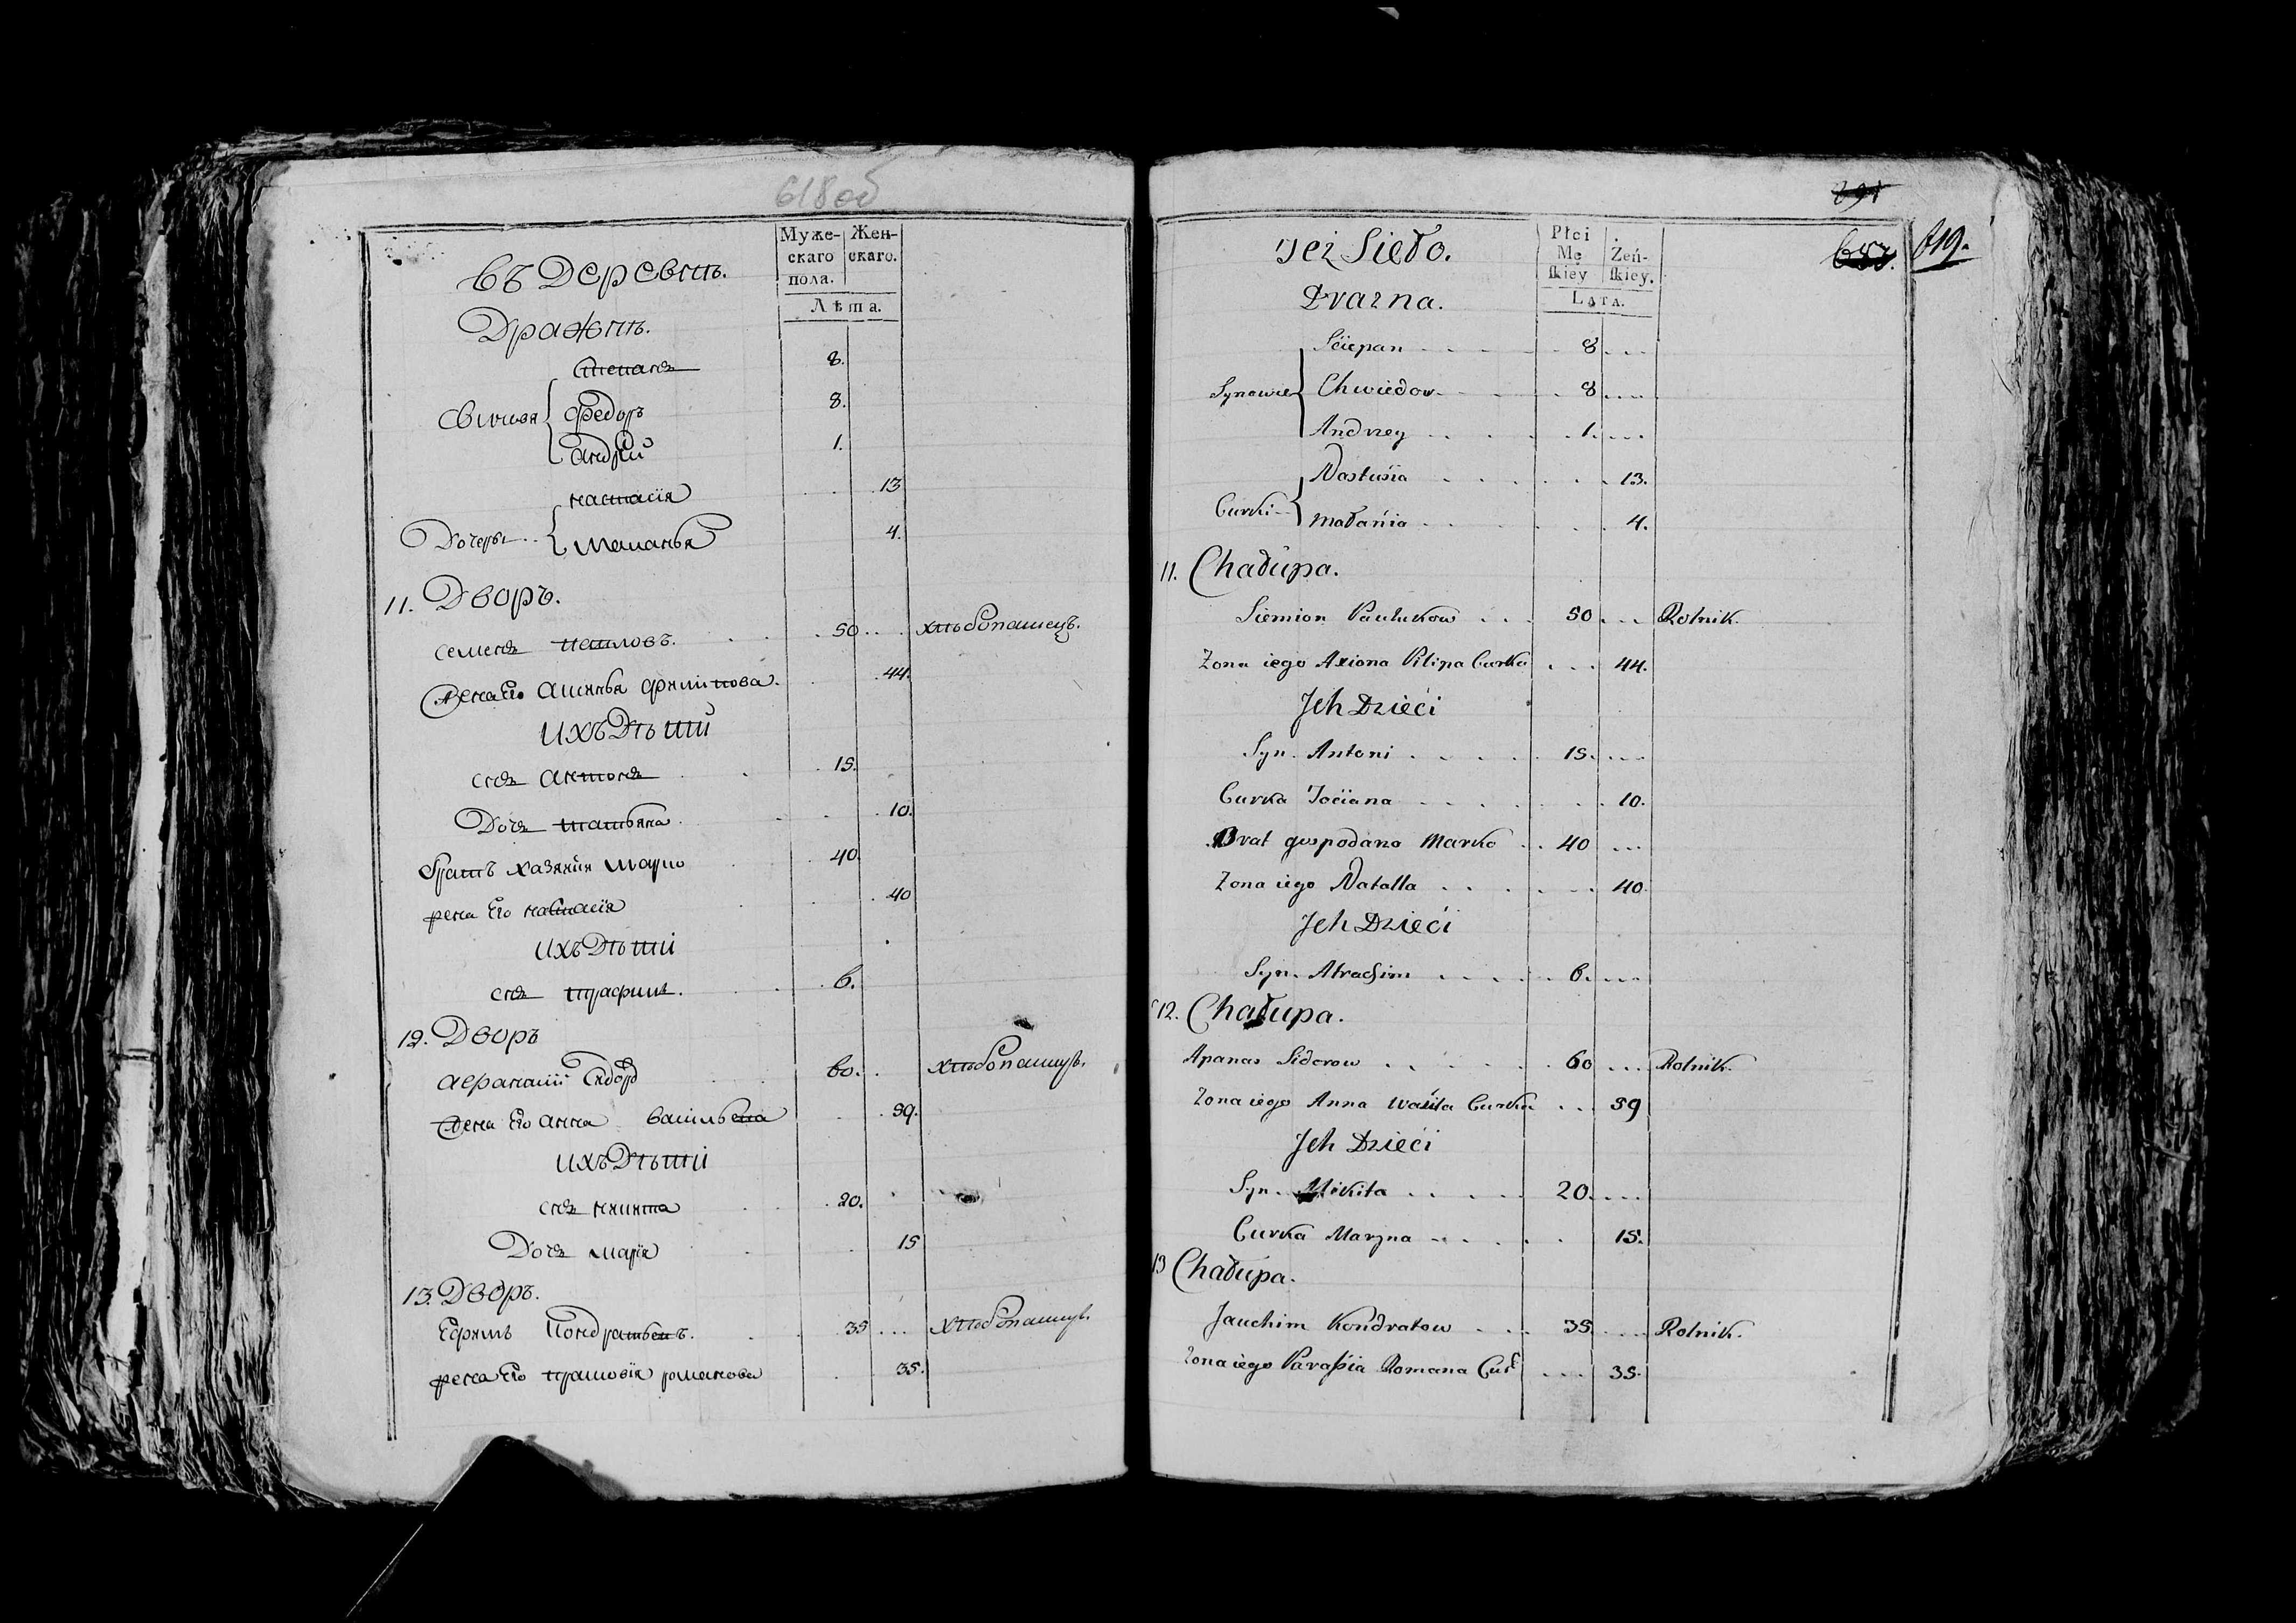 618об
въ Деревнѣ.
Дражнѣ.
Муже-скаго пола.
Жен-скаго.
Лѣта.
Степанъ 8.
Сыновя Федоръ 8.
Андрей 1.
настасїя 13
Дочеры Маланья 4.
11. Дворъ.
семенъ павловъ. 50 хлѣбопашецъ.
жена Его аксинья филипова. 44.
ихъ Дѣти
снъ антонъ 15.
Дочь татьяна 10.
братъ хазяина марко 40.
жена Его настасїя 40
ихъ Дѣти
снъ трафимъ. 6.
12. Дворъ
афанасїй Сидоръ 60. хлѣбопашецъ.
жена Его анна васильева 59.
ихъ Дѣти
снъ никита 20.
Дочь марїя 15
13. Дворъ.
Ефимъ Кондратьевъ. 35 хлѣбопашецъ.
жена Его прасковїя романова 35.
619.
Jeż Sieło.
Drażna.
Płci Męſkiey
Żeńſkiey.
Lata.
Sciepan 8
Synowie Chwiedor 8
Andrzey 1.
Nastusia 13.
Curki Małańia 4.
11. Chałupa.
Siemion Paulukow 50 Rolnik.
Zona iego Axiona Pilipa Curka 44.
Jch Dzieći
Syn. Antoni 15.
Curka Taciana 10.
Brat gospodana Marko 40
Zona iego Natalla 40
Jch Dzieći
Syn. Atrachim 6.
12. Chałupa.
Apanas Sidorow 60 Rolnik.
Zona iego Anna Wasila Curka 59
Jch Dzieći
Syn. Mikita 20.
Curka Maryna 15.
13 Chałupa.
Jauchim Kondratow 35 Rolnik.
Zona iego Paraſsia Romana Curk 35.